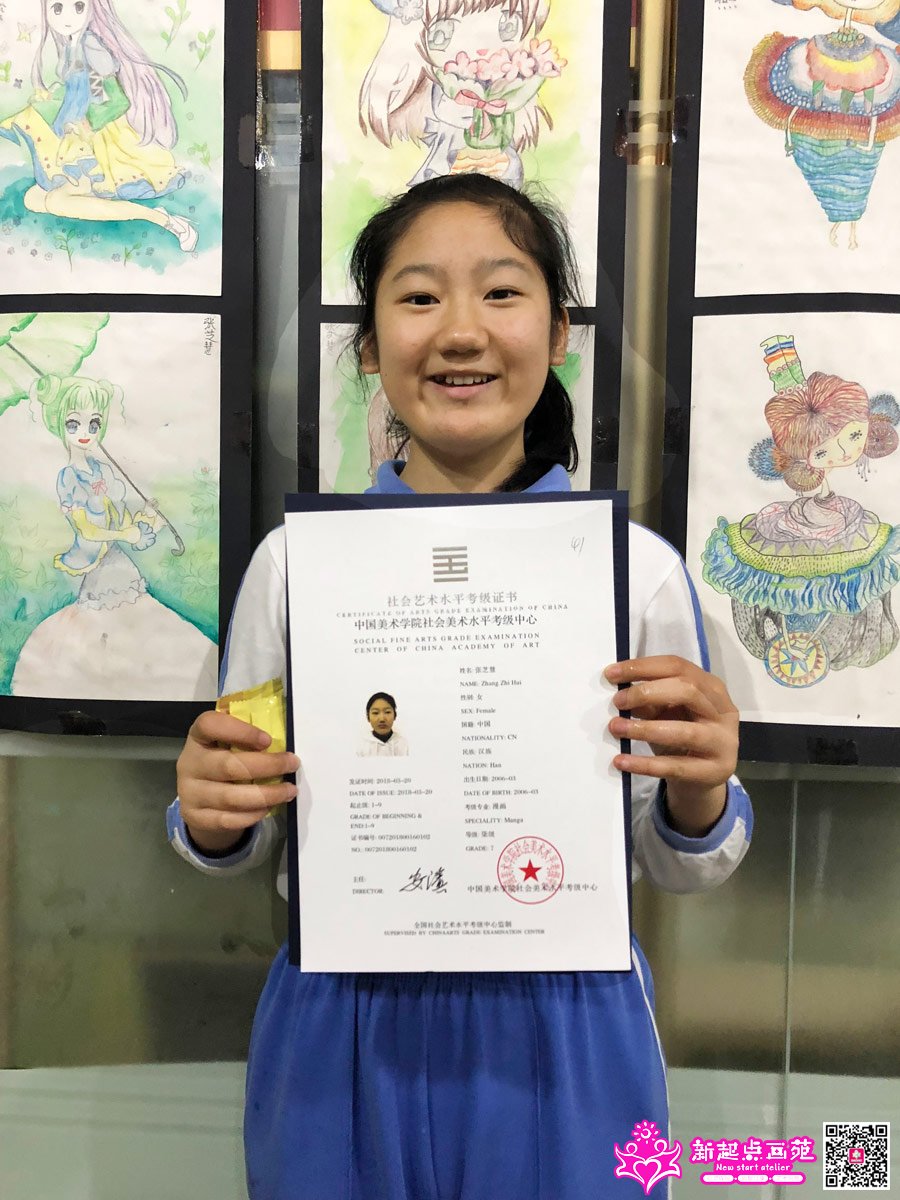 张芝慧
张芝慧
41
社会艺术水平考级证书
CERTIFICATE OF ARTS GRADE EXAMINATION OF CHINA
中国美术学院社会美术水平考级中心
SOCIAL FINE ARTS GRADE EXAMINATION
CENTER OF CHINA ACADEMY OF ART
姓名: 张芝慧
NAME: Zhang Zhi Hui
性别: 女
SEX: Female
国籍: 中国
NATIONALITY: CN
民族: 汉族
NATION: Han
发证时间: 2018-03-20
DATE OF ISSUE: 2018-03-20
起止级: 1-9
GRADE OF BEGINNING &
END:1-9
证书编号: 007201800160102
NO.: 007201800160102
出生日期: 2006-03
DATE OF BIRTH: 2006-03
考级专业: 漫画
SPECIALITY: Manga
等级: 柒级
GRADE: 7
主任:
DIRECTOR:
中国美术学院社会美术水平考级中心
全国社会艺术水平考级中心监制
SUPERVISED BY CHINAARTS GRADE EXAMINATION CENTER
新起点画苑
New start atelier